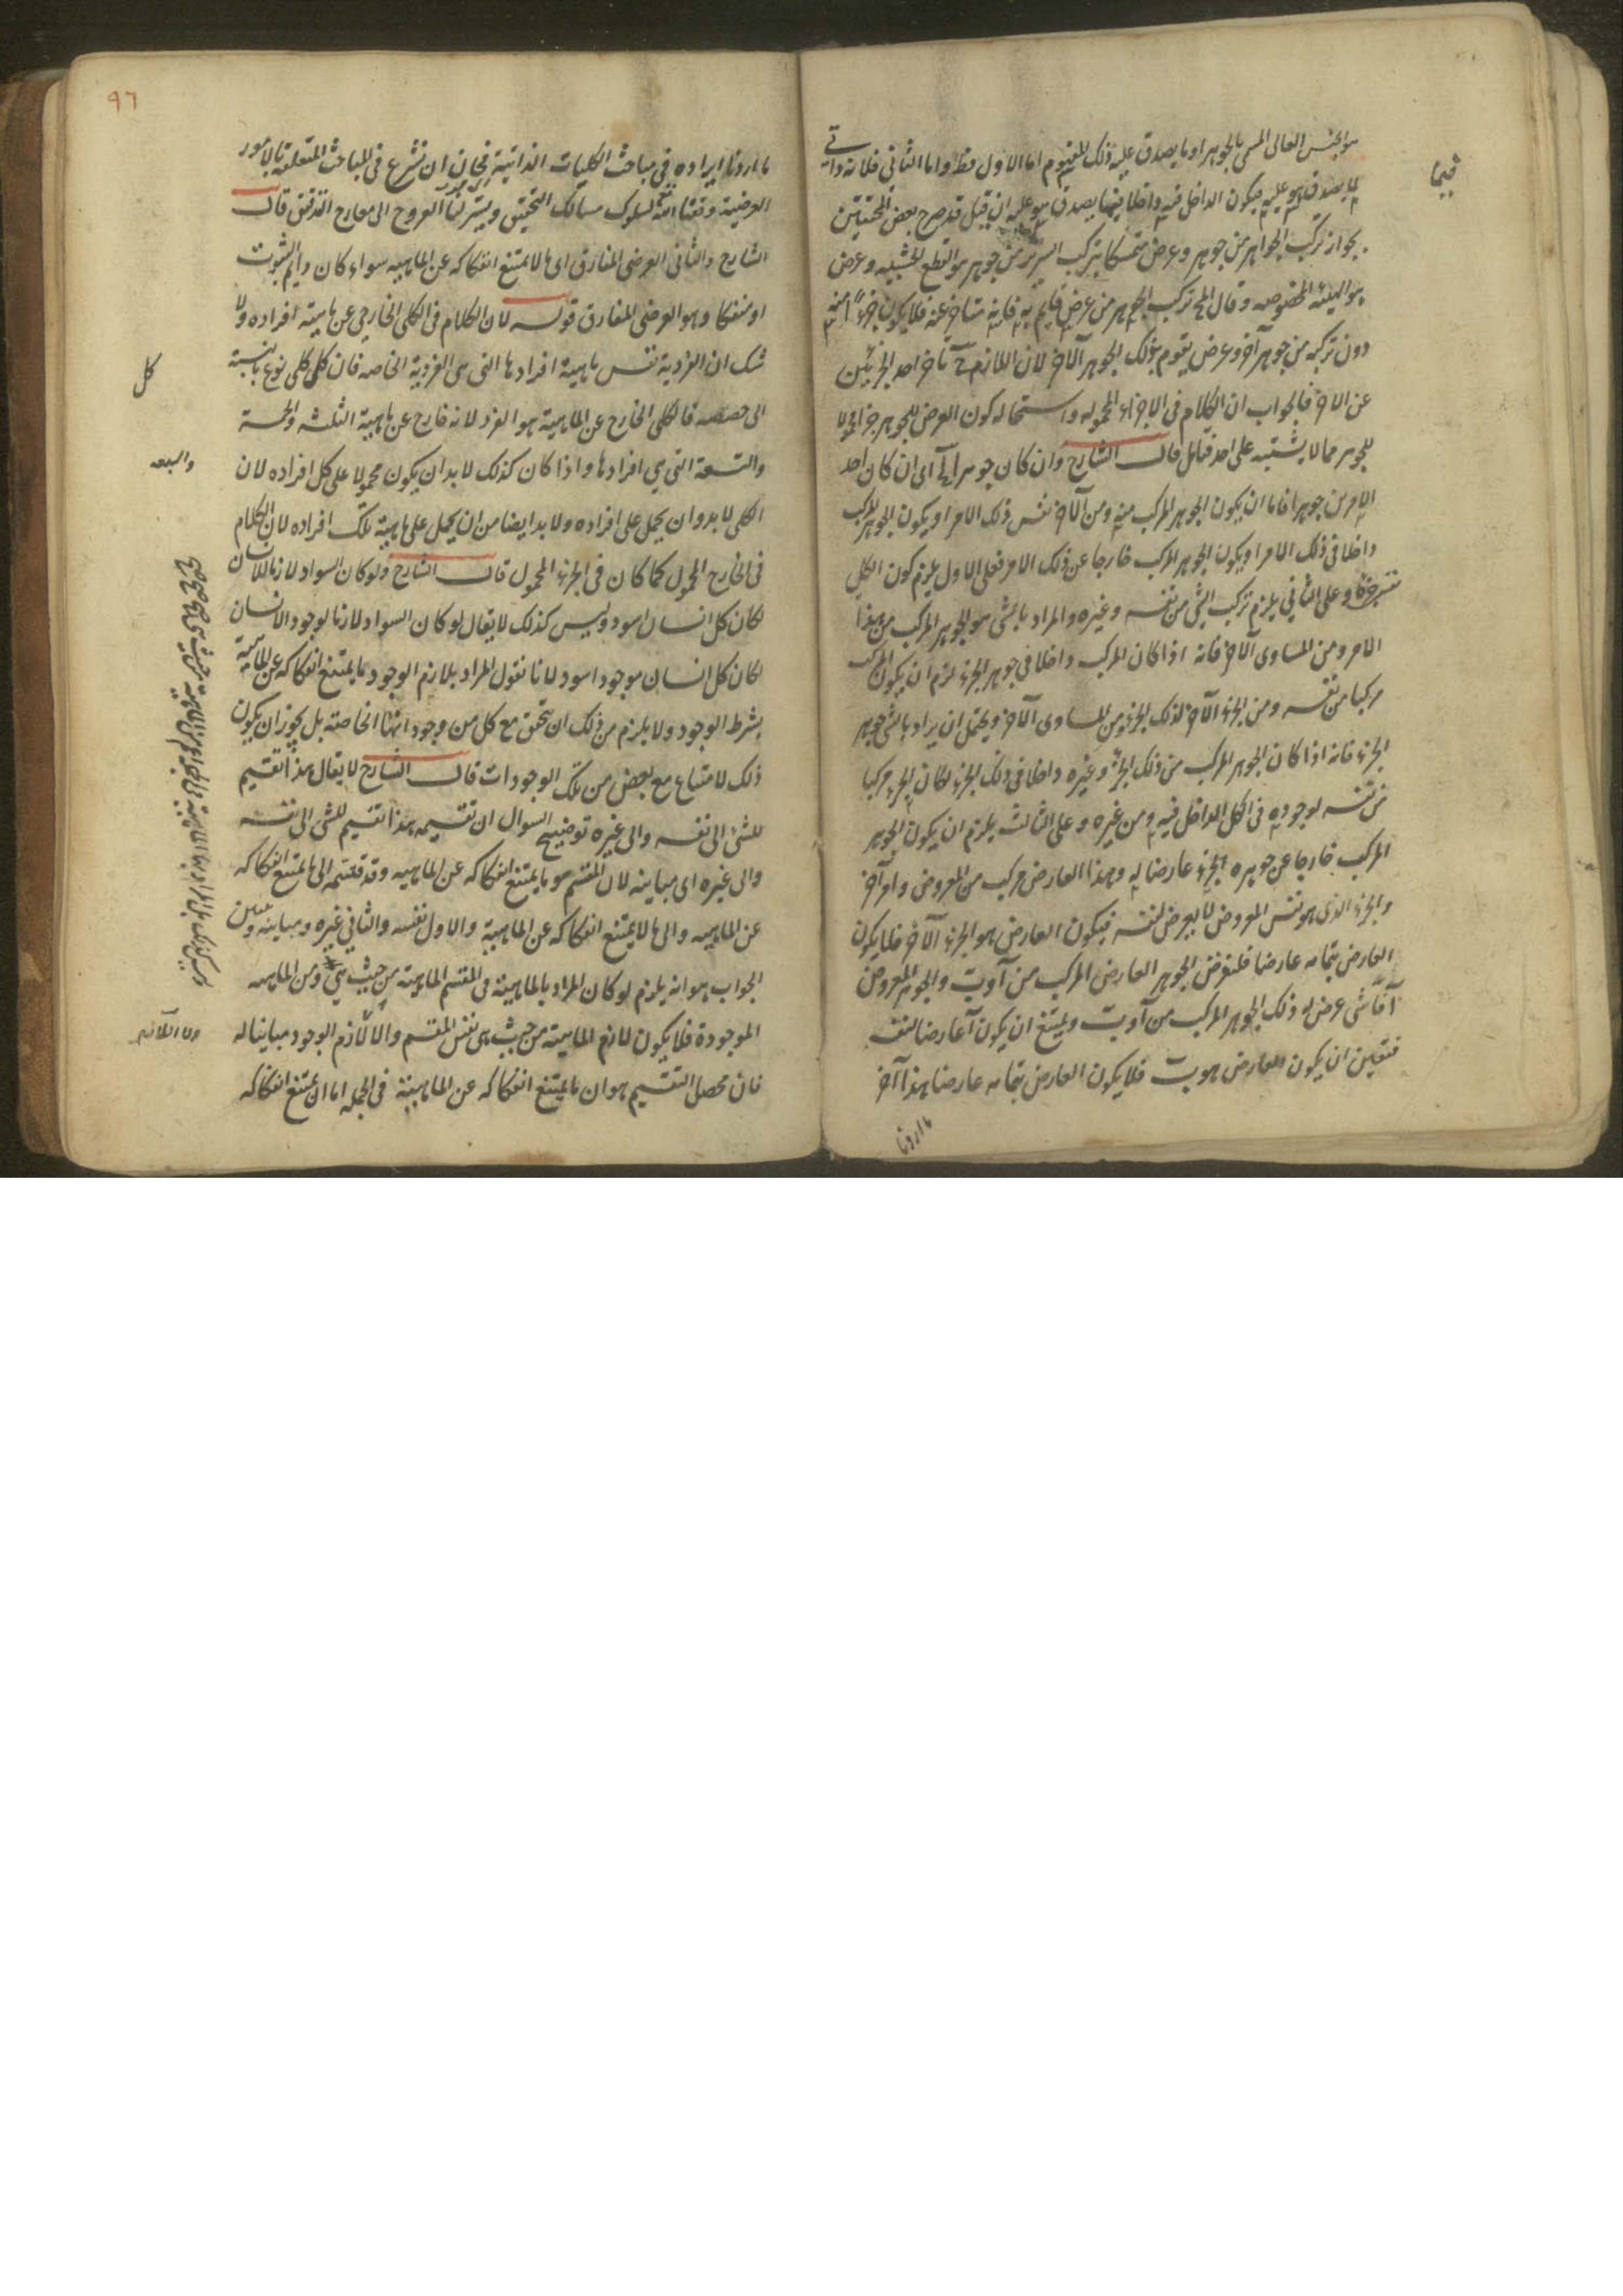 هو الجنس العالى المسمى بالجوهر او ما يصدق عليه ذلك المفهوم اما الاول فظ واما الثانى فلانه
لما يصدق هو عليه فيكون الداخل فيه داخلا فيما يصدق هو عليه ان قيل قد صرح بعض المحققين
فيما
بجواز تركب الجواهر من جوهر وعرض متمسكا بتركب السرير من جوهر هو القطع الخشبيه وعرض
هو الهيئه المخصوصه وقال المح تركب الجوهر من عرض قايم به فانه متاخر عنه فلا يكون جزءا منه
دون تركبه من جوهر آخر وعرض يقوم بذلك الجوهر الآخر لان اللازم ح تاخر احد الجزئين
عن الاخر فالجواب ان الكلام فى الاجزاء المحموله واستحاله كون العرض للجوهر جزا محمولا
للجوهر مما لا يشتبه على احد فتامل قال الشارح وان كان جوهرا الخ اى ان كان احد
الامرين جوهرا فاما ان يكون الجوهر المركب منه ومن الآخر نفس ذلك الامر او يكون الجوهر المركب
داخلا فى ذلك الامر او يكون الجوهر المركب خارجا عن ذلك الامر فعلى الاول يلزم كون الكل
نفس جزئه وعلى الثانى يلزم تركب الشى من نفسه وغيره والمراد بالشى هو الجوهر المركب من هذا
الامر ومن المساوى الآخر فانه اذا كان المركب داخلا فى جوهر الجزء لزم ان يكون المركب
مركبا من نفسه ومن الجزء الآخر لذلك الجزء ومن المساوى الآخر ويحتمل ان يراد بالشى جوهر
الجزء فانه اذا كان الجوهر المركب من ذلك الجزء وغيره داخلا فى ذلك الجزء لكان الجزء مركبا
من نفسه لوجوده فى الكل الداخل فيه ومن غيره وعلى الثالث يلزم ان يكون الجوهر
المركب خارجا عن جوهره الجزء عارضا له وهذا العارض مركب من المعروض وامر آخر
والجزء الذى هو نفس المعروض لا يعرض لنفسه فيكون العارض هو الجزء الآخر فلا يكون
العارض بتمامه عارضا فلنفرض الجوهر العارض المركب من آ و ب والجوهر المعروض
آ فآ شى عرض له ذلك الجوهر المركب من آ و ب ويمتنع ان يكون آ عارضا لنفسه
فتعين ان يكون العارض هو ب فلا يكون العارض بتمامه عارضا هذا آخر
ما اردنا
٩٦
ما اردنا ايراده فى مباحث الكليات الذاتية فحان ان نشرع فى المباحث المتعلقة بالامور
العرضية وفقنا الله لسلوك مسالك التحقيق ويسر لنا العروج الى معارج التدقيق قال
الشارح والثانى العرضى المفارق اى ما لا يمتنع انفكاكه عن الماهيه سواء كان دايم الثبوت
او منفكا وهو العرضى المفارق قوله لان الكلام فى الكلى الخارجى عن ماهية افراده ولا
شك ان الفردية نفس ماهية افرادها التى هى الفردية الخاصه فان كل كلى نوع بالنسبة
كل
الى حصصه فالكلى الخارج عن الماهية هو الفرد لانه خارج عن ماهية الثلثه والخمسة
والسبعه
والتسعة التى هى افرادها واذا كان كذلك لا بد ان يكون محمولا على كل افراده لان
الكلى لا بد وان يحمل على افراده ولا بد ايضا من ان يحمل على ماهية تلك افراده لان الكلام
فى الخارج المحمول كما كان فى الجزء المحمول قال الشارح ولو كان السواد لازما للانسان
لكان كل انسان اسود وليس كذلك لا يقال لو كان السواد لازما لوجود الانسان
لكان كل انسان موجود اسود لانا نقول المراد بلازم الوجود ما يمتنع انفكاكه عن الماهية
بشرط الوجود ولا يلزم من ذلك ان يتحقق مع كل من وجوداتها الخاصة بل يجوز ان يكون
ذلك لامتناع مع بعض من تلك الوجودات قال الشارح لا يقال هذا تقسيم
للشئ الى نفسه والى غيره توضيح السوال ان تقسيمه هذا تقسيم للشى الى نفسه
والى غيره اى مباينه لان المقسم هو ما يمتنع انفكاكه عن الماهيه وقد قسمه الى ما يمتنع انفكاكه
عن الماهيه والى ما لا يمتنع انفكاكه عن الماهية والاول نفسه والثانى غيره ومباينه
الجواب هو انه يلزم لو كان المراد بالماهية فى المقسم الماهية من حيث هى ومن الماهيه
الموجودة فلا يكون لازم الماهية من حيث هى نفس المقسم والا لازم الوجود مباينا له
فان محصل التقسيم هو ان ما يمتنع انفكاكه عن الماهية فى الجمله اما ان يمتنع انفكاكه